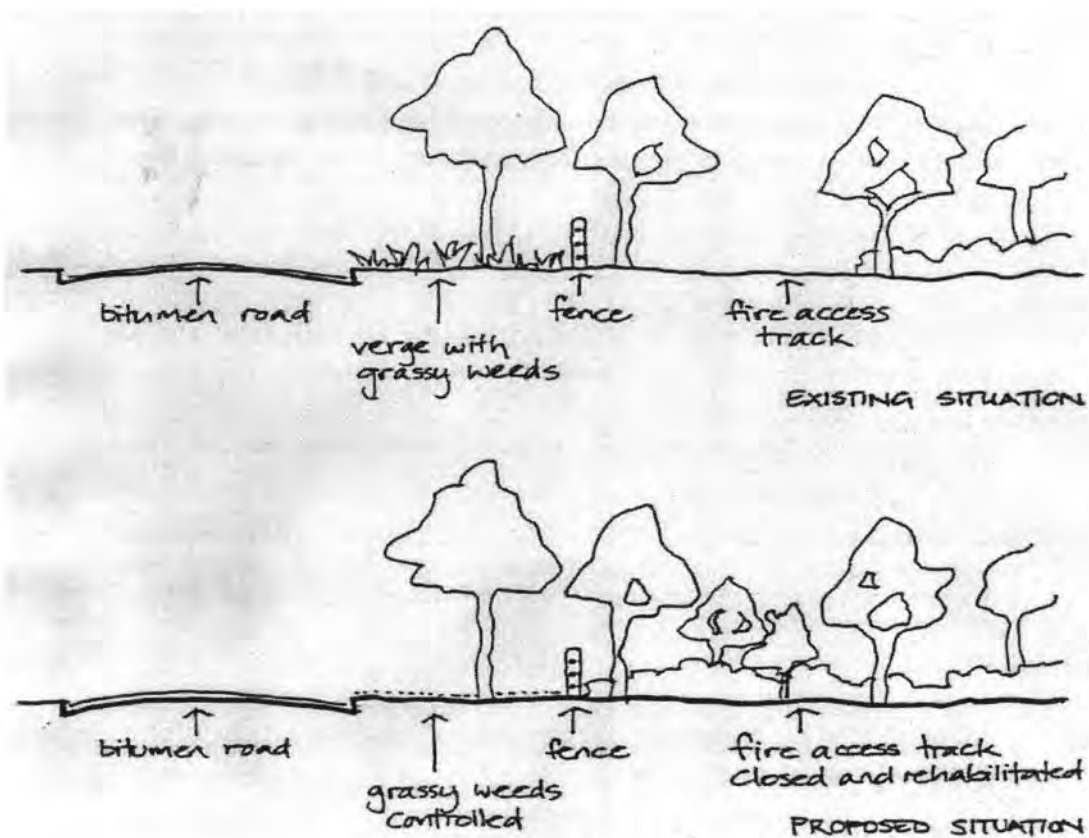 bitumen road
verge with
grassy weeds
fence
fire access
track
EXISTING SITUATION
bitumen road
grassy weeds
controlled
fence
fire access track
Closed and rehabilitated
PROPOSED SITUATION